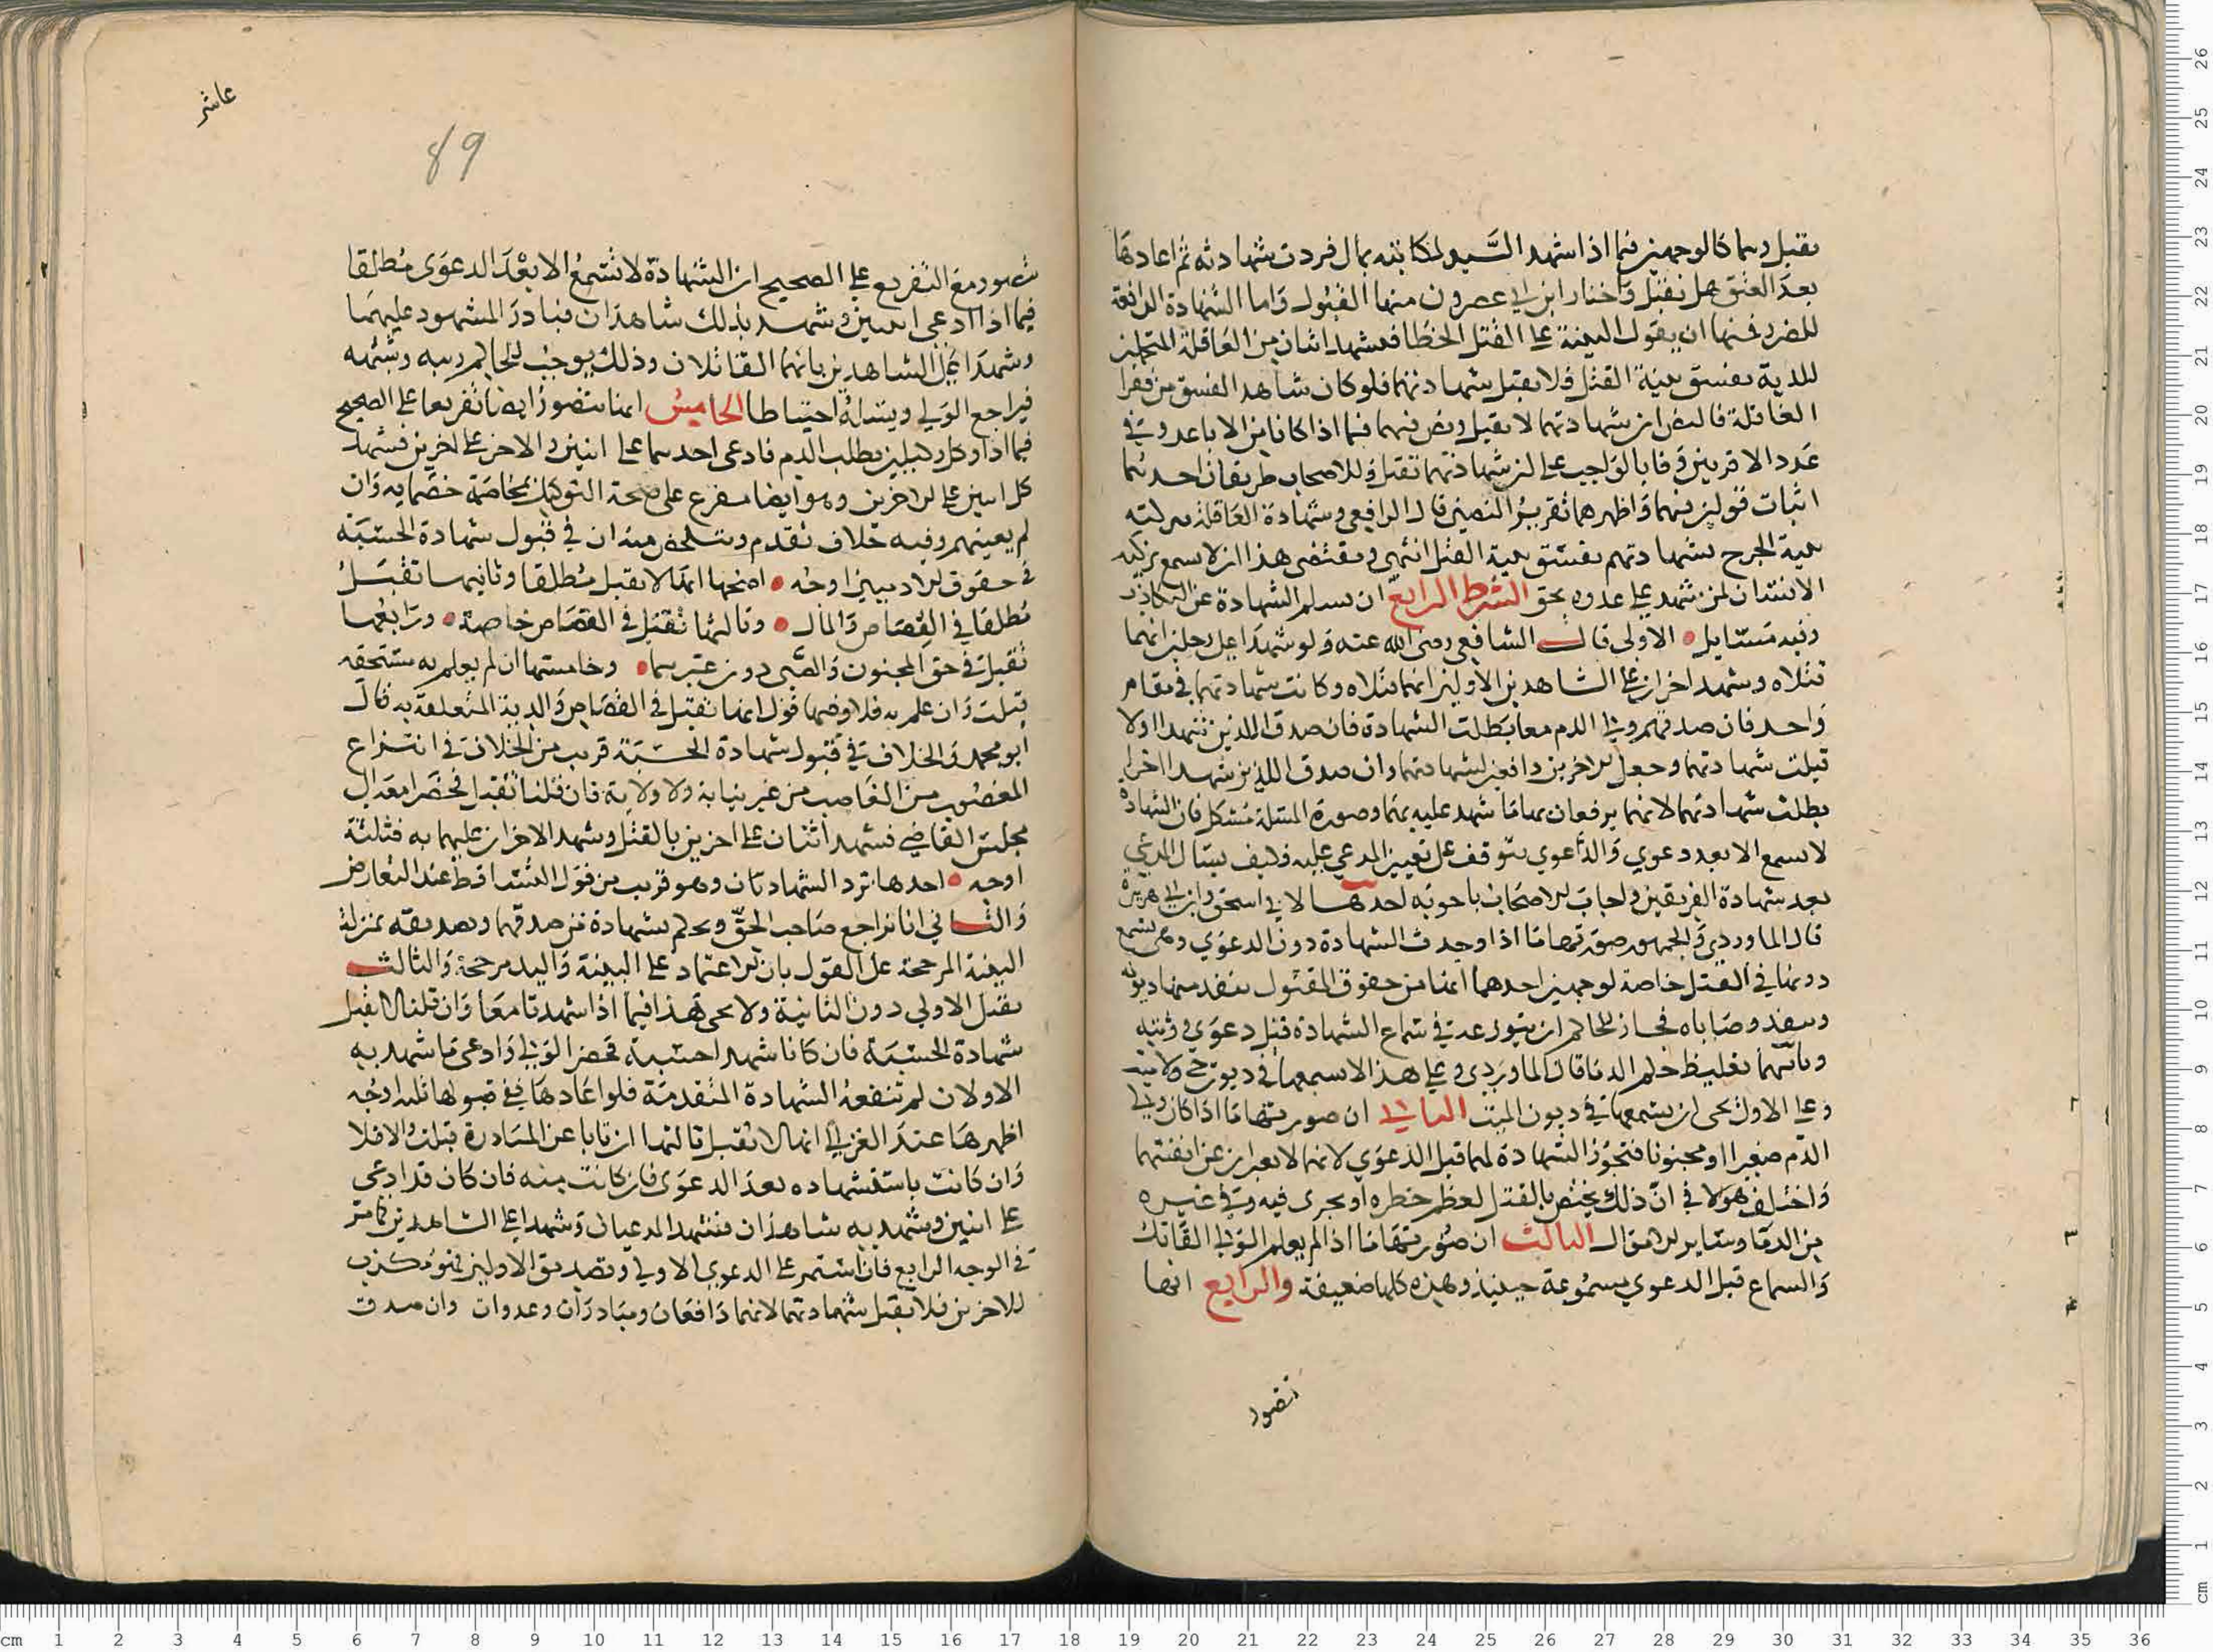 يقبل وهما كالوجهين فيما اذا شهد السيد لمكاتبه بمال فردت شهادته ثم اعادها
بعد العتق هل تقبل واختار ابن ابي عصرون منها القبول واما الشهادة الدافعة
للضرر فمنها ان يقول البينة على القتل الخطا فيشهد اثنان من العاقلة المتحملين
للدية بفسق بينة القتل فلا يقبل شهادتهما فلو كان شاهد الفسق من فقرا
العاقلة فالنص ان شهادتهما لا تقبل ونص فيهما فيما اذا كانا من الاباعد وفي
عدد الاقربين وفا بالواجب على ان شهادتهما تقبل وللاصحاب طريقان احدهما
اثبات قولين فيهما واظهرهما تقرير النصين قال الرافعي وشهادة العاقلة بتزكية
بينة الجرح بشهادتهم بفسق بينة القتل انتهى ومقتضى هذا ان لا تسمع تزكية
الانسان لمن شهد على عدوه بحق الشرط الرابع ان تسلم الشهادة عن التكاذب
وفيه مسايل الاولى قال الشافعي رضي الله عنه ولو شهدا على رجلين انهما
قتلاه وشهد اخران على الشاهدين الاولين انهما قتلاه وكانت شهادتهما في مقام
واحد فان صدقهم ولي الدم معا بطلت الشهادة فان صدق اللذين شهدا اولا
قبلت شهادتهما وجعل الاخرين دافعين لشهادتهما وان صدق اللذين شهدا اخرا
بطلت شهادتهما لانهما يدفعان بها ما شهد عليه بهما وصورة المسئلة مشكل فان الشهادة
لا تسمع الا بعد دعوي والدعوي تتوقف على تعيين المدعي عليه فكيف يسال المدعي
بعد شهادة الفريقين واجاب الاصحاب باجوبه احدها لابي اسحق وابن ابي هريرة
قال الماوردي والجمهور صورتها ما اذا وجدت الشهادة دون الدعوي وهي تسمع
دونها في القتل خاصة لوجهين احدهما انها من حقوق المقتول تنفذ منها ديونه
وتنفذ وصاياه فجاز للحاكم ان ينوب عنه في سماع الشهادة قبل دعوى وليه
وثانيهما تغليظ حكم الدما قال الماوردي وعلى هذا لا تسمعها في ديون حي ولا ميت
وعلى الاول يجي ان يسمعها في ديون الميت الثاني ان صورتها ما اذا كان ولي
الدم صغيرا او مجنونا فتجوز الشهادة لهما قبل الدعوي لانهما لا يعبران عن انفسهما
واختلف هولا في ان ذلك يختص بالقتل لعظم خطره او يجرى فيه وفي غيره
من الدما وساير الاموال الثالث ان صورتها ما اذا لم يعلم الولي القاتل
والسماع قبل الدعوي مسموعة حينيذ وهذه كلها ضعيفة والرابع انها
تتصور
عاشر
89
تتصور مع التفريع على الصحيح ان الشهادة لا تسمع الا بعد الدعوى مطلقا
فيما اذا ادعى على اثنين وشهد بذلك شاهدان فبادر المشهود عليهما
وشهدا على الشاهدين بانهما القاتلان وذلك يوجب للحاكم ريبه وشبهه
فيراجع الولي ويسئله احتياطا الخامس انها تتصور ايضا تفريعا على الصحيح
فيما اذا وكل وكيلين بطلب الدم فادعى احدهما على اثنين والاخر على اخرين فشهد
كل اثنين على الاخرين وهو ايضا مفرع على صحة التوكيل بمخاصمة خصمايه وان
لم يعينهم وفيه خلاف تقدم ويتلخص منه ان في قبول شهادة الحسبة
في حقوق الادميين اوجه اصحها انها لا تقبل مطلقا وثانيها تقبل
مطلقا في القصاص والمال وثالثها تقبل في القصاص خاصة ورابعها
تقبل في حق المجنون والصبي دون غيرهما وخامسها ان لم يعلم به مستحقه
قبلت وان علم به فلا وفيها قول انها تقبل في القصاص والدية المتعلقة به قال
ابو محمد والخلاف في قبول شهادة الحسبة قريب من الخلاف في انتزاع
المغصوب من الغاصب من غير نيابة ولا ولاية فان قلنا تقبل فحضرا معا الى
مجلس القاضي فشهد اثنان على اخرين بالقتل وشهد الاخران عليهما به فثلثة
اوجه احدها ترد الشهادتان وهو قريب من قول التساقط عند التعارض
والثاني انا نراجع صاحب الحق ويحكم بشهادة من صدقهما وتصديقه بمنزلة
البينة المرجحة على القول بان الاعتماد على البينة واليد مرجحة والثالث
تقبل الاولى دون الثانية ولا يجي هذا فيما اذا شهدتا معا وان قلنا لا تقبل
شهادة الحسبة فان كانا شهدا حسبة فحضر الولي وادعى ما شهد به
الاولان لم تنفعه الشهادة المتقدمة فلو اعادها ففي قبولها ثلثة اوجه
اظهرها عند الغزالي انها لا تقبل ثالثها ان تابا عن المبادرة قبلت والا فلا
وان كانت باستشهاده بعد الدعوى فان كانت منه فان كان قد ادعي
على اثنين وشهد به شاهدان فشهد المدعيان وشهدا على الشاهدين كما مر
في الوجه الرابع فان استمر على الدعوي الاولي وتصديق الاولين فهو مكذب
للاخرين فلا تقبل شهادتهما لانهما دافعان ومبادران وعدوان وان صدق